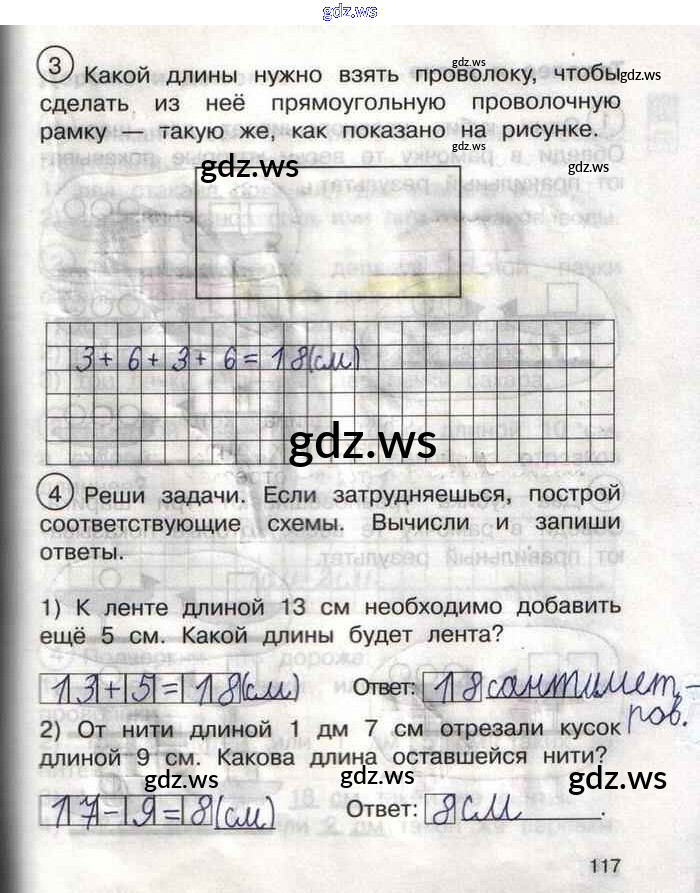 gdz.ws
3 Какой длины нужно взять проволоку, чтобы
gdz.ws
gdz.ws
сделать из неё прямоугольную проволочную
рамку — такую же, как показано на рисунке.
gdz.ws
gdz.ws
gdz.ws
3 + 6 + 3 + 6 = 18(см)
gdz.ws
4 Реши задачи. Если затрудняешься, построй
соответствующие схемы. Вычисли и запиши
ответы.
1) К ленте длиной 13 см необходимо добавить
ещё 5 см. Какой длины будет лента?
13+5=18(см) Ответ: 18 сантимет-
ров.
2) От нити длиной 1 дм 7 см отрезали кусок
длиной 9 см. Какова длина оставшейся нити?
gdz.ws gdz.ws gdz.ws
17-9=8(см) Ответ: 8 см.
117